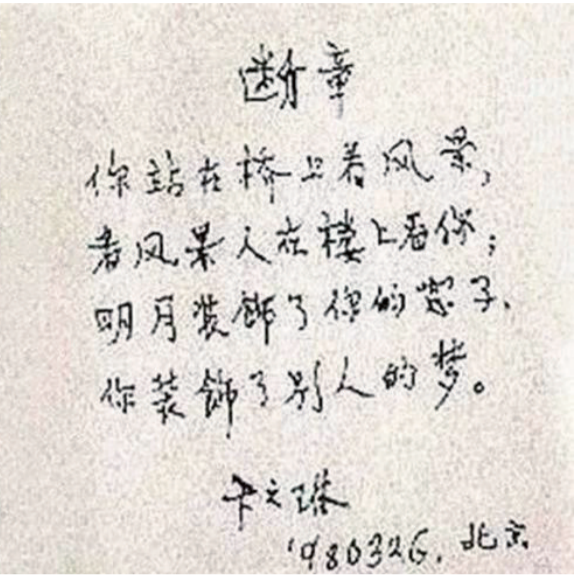 断章
你站在桥上看风景,
看风景人在楼上看你;
明月装饰了你的窗子,
你装饰了别人的梦。
卞之琳
1980326. 北京